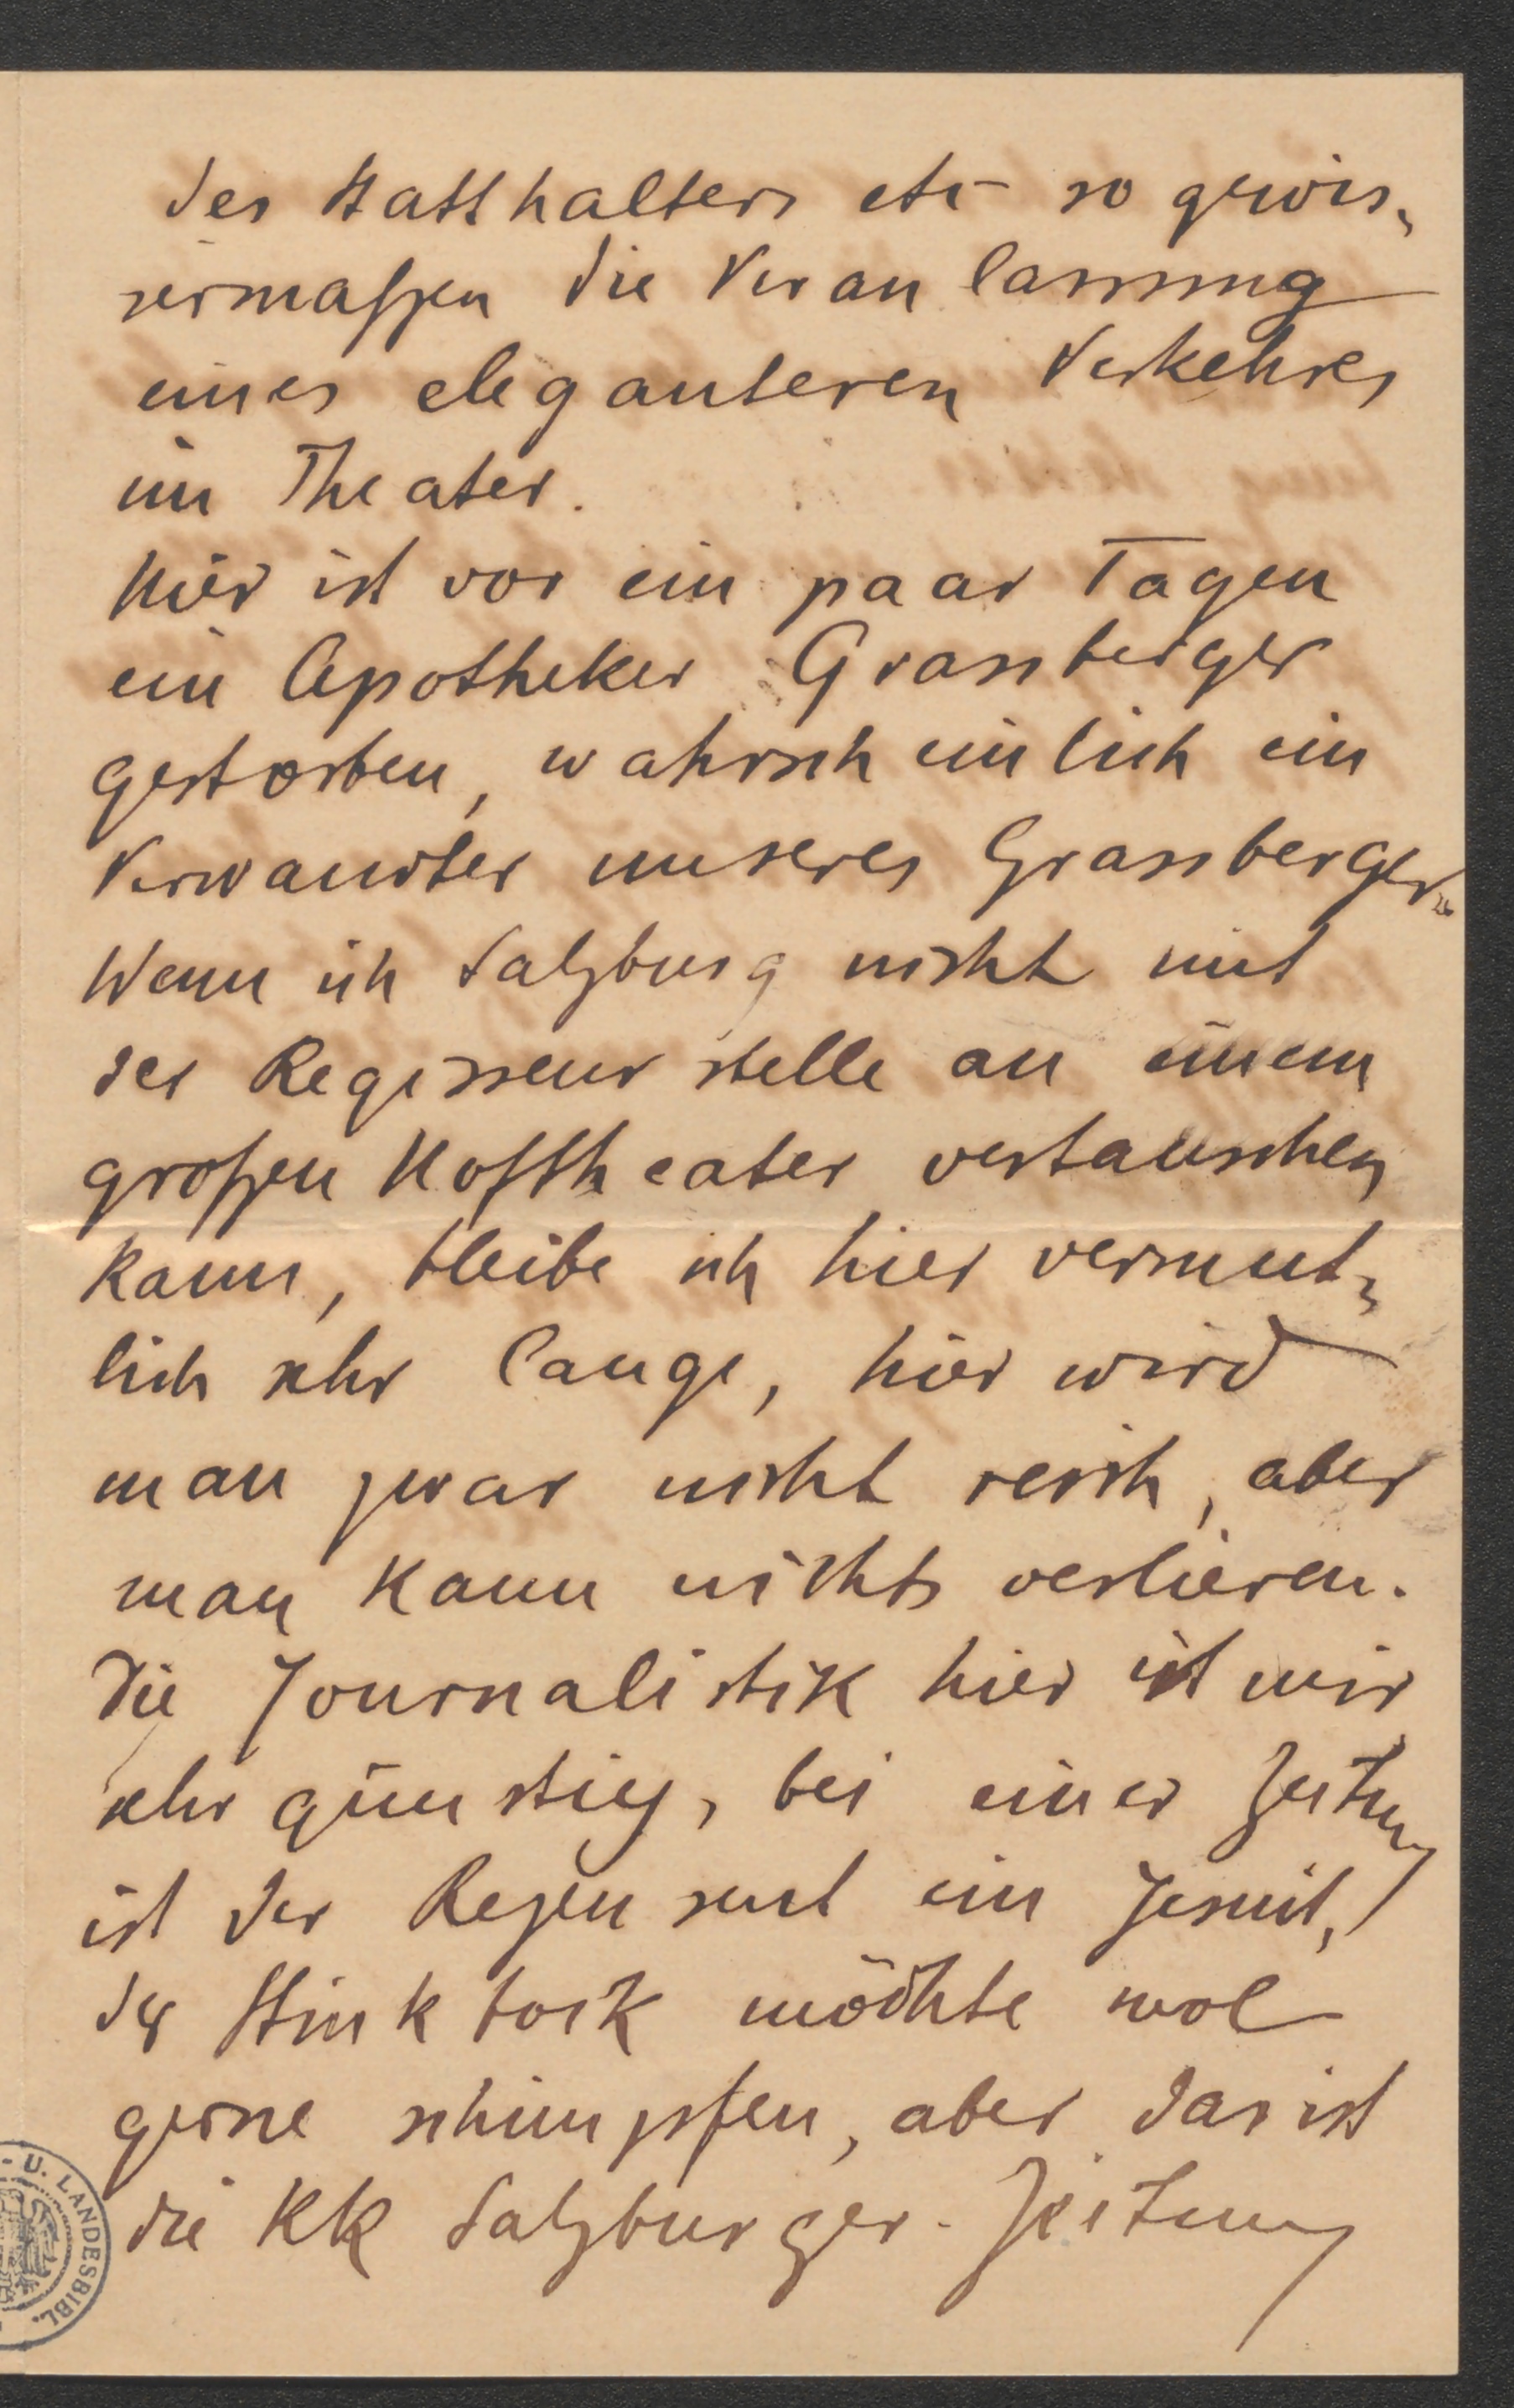 des Statthalters etc so gewis„
sermaßen die Veranlassung
eines eleganteren Verkehres
im Theater.
Hier ist vor ein paar Tagen
ein Apotheker Grassberger
gestorben, wahrscheinlich ein
Verwandter unseres Grassberger.
Wenn ich Salzburg nicht mit
der Regisseurstelle an einem
großen Hoftheater vertauschen
kann, bleibe ich hier vermut„
lich sehr lange, hier wird
man zwar nicht reich, aber
man kann nichts verlieren.
Die Journalistik hier ist mir
sehr günstig, bei einer Zeitung
ist der Rezensent ein Jesuit,
der Stinkbock möchte wol
gerne schimpfen, aber das ist
die KK Salzburger-Zeitung
U. LANDESBIBL.